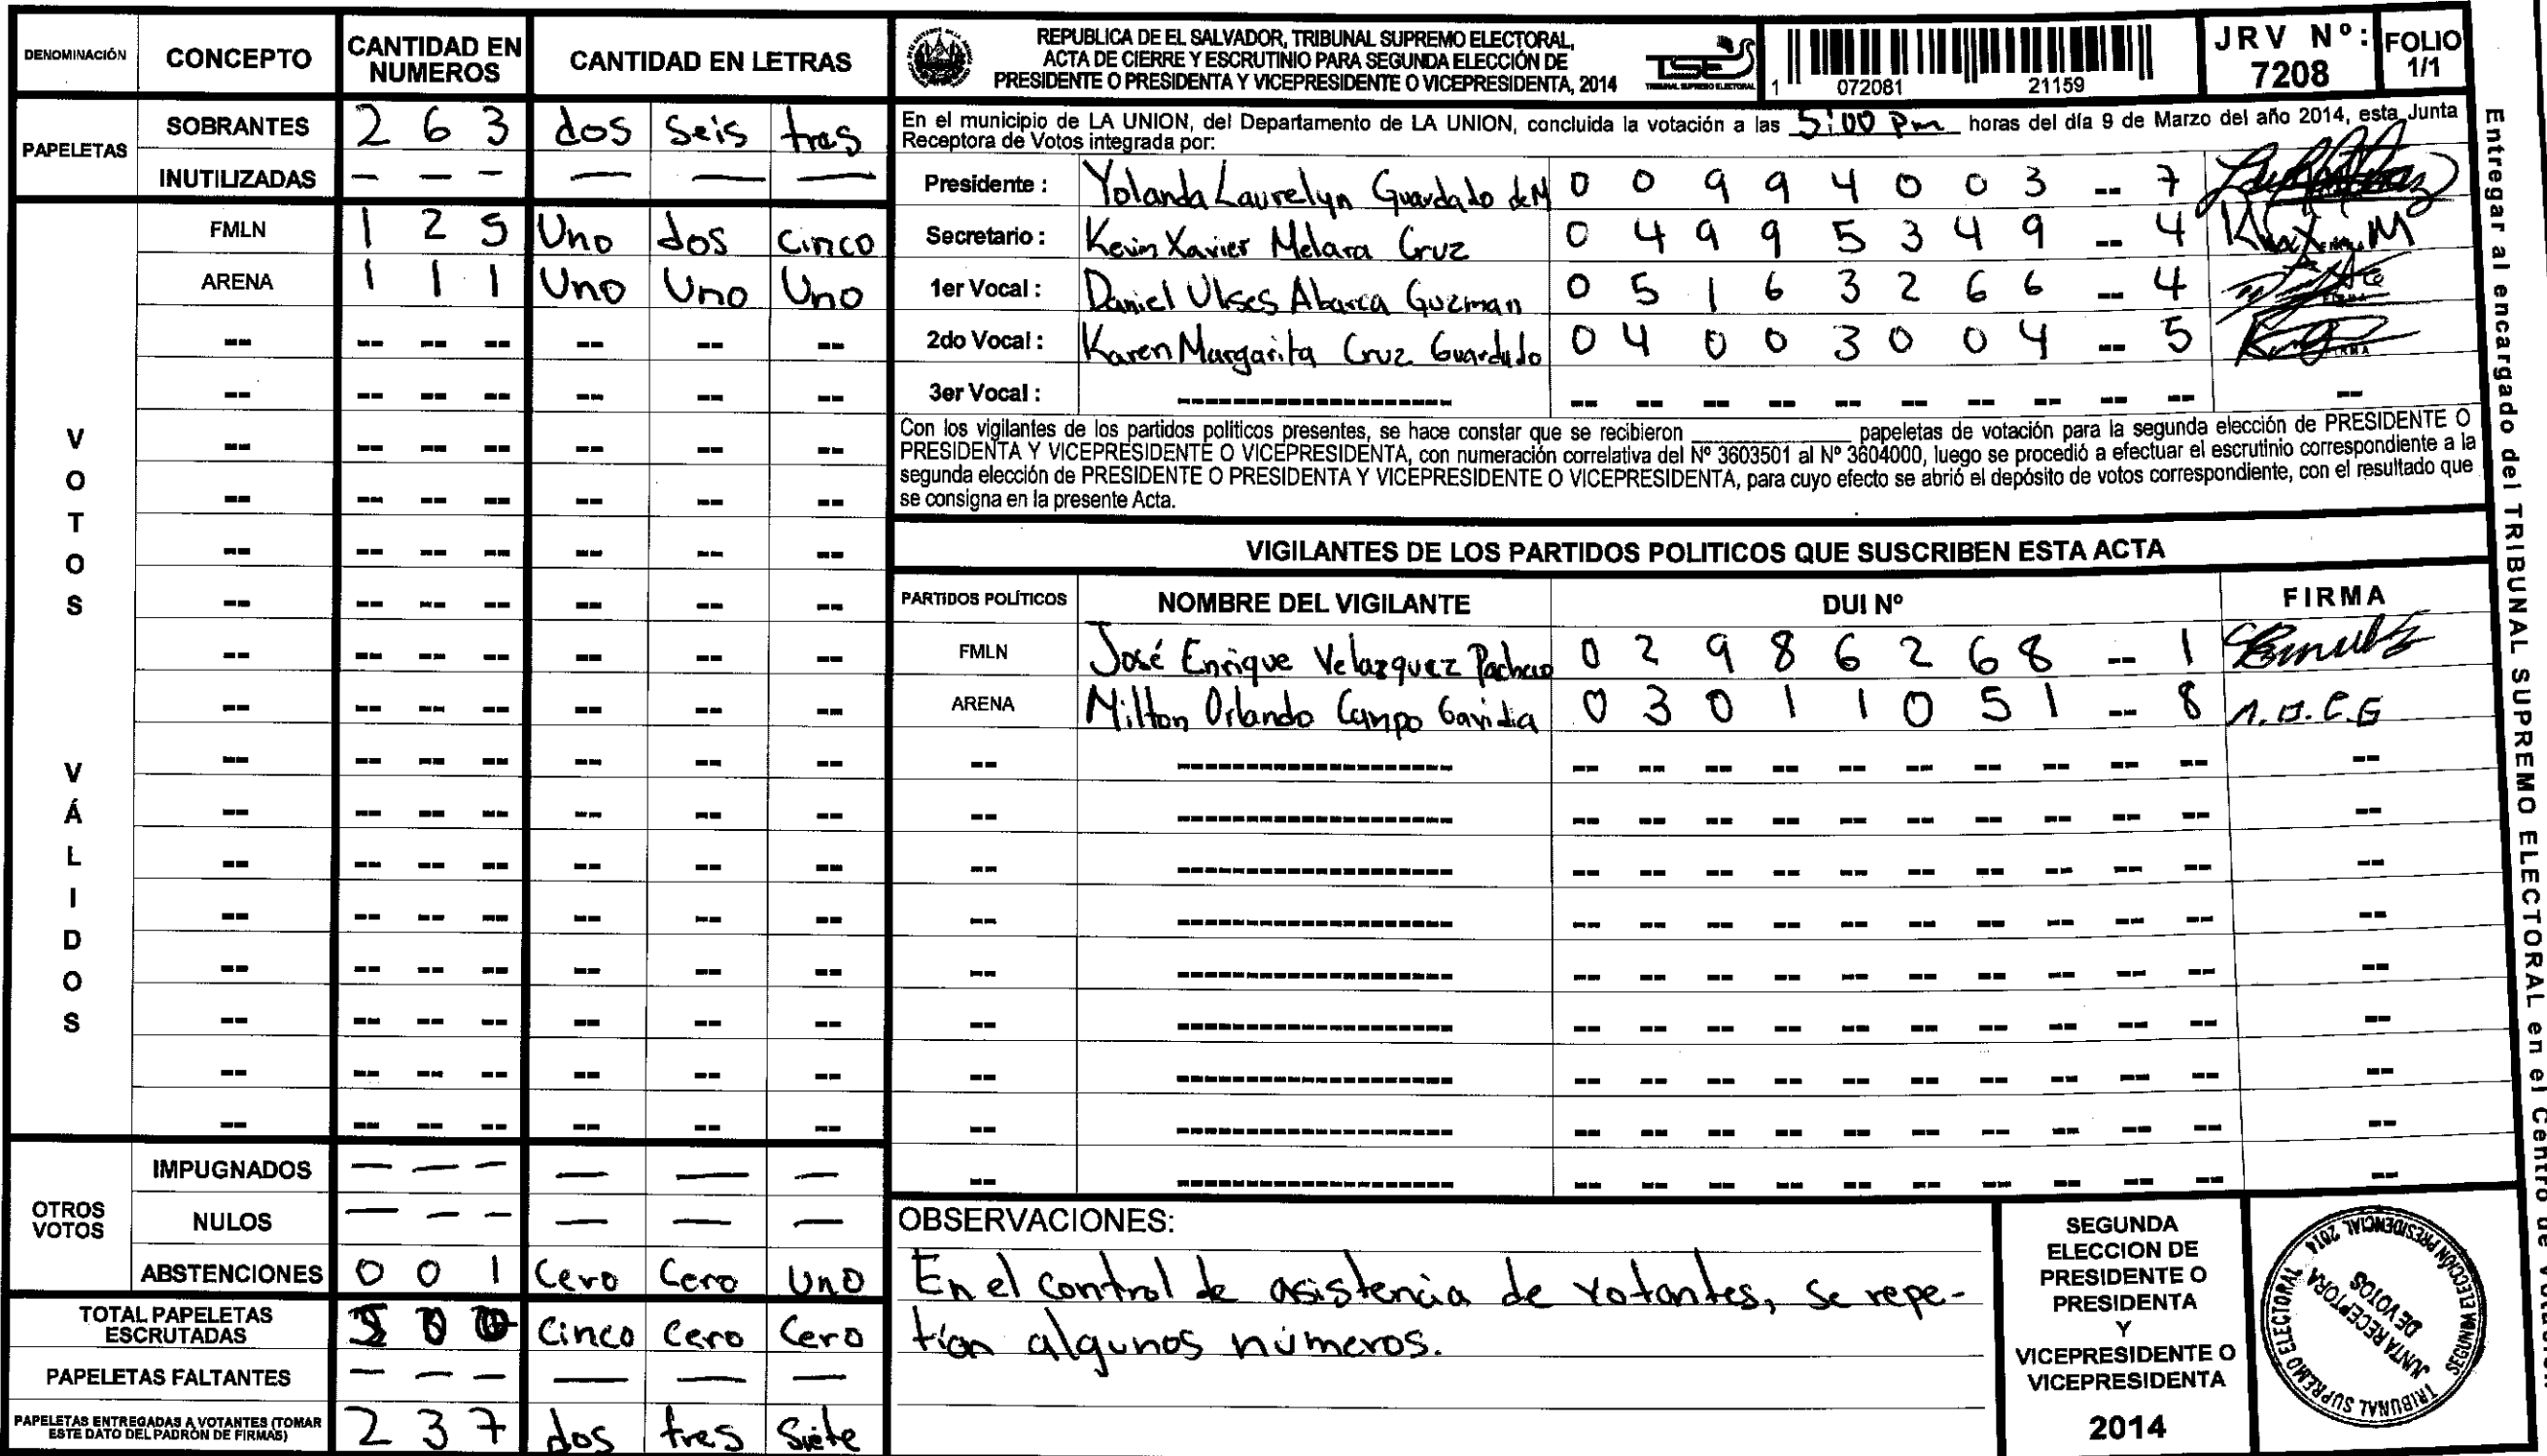 DENOMINACIÓN CONCEPTO CANTIDAD EN NUMEROS CANTIDAD EN LETRAS
PAPELETAS
SOBRANTES 2 6 3 dos seis tres
INUTILIZADAS – – – – – –
VOTOS VÁLIDOS
FMLN 1 2 5 Uno dos cinco
ARENA 1 1 1 Uno Uno Uno
OTROS VOTOS
IMPUGNADOS – – – – – –
NULOS – – – – – –
ABSTENCIONES 0 0 1 Cero Cero Uno
TOTAL PAPELETAS ESCRUTADAS 5 0 0 Cinco Cero Cero
PAPELETAS FALTANTES – – – – – –
PAPELETAS ENTREGADAS A VOTANTES (TOMAR ESTE DATO DEL PADRÓN DE FIRMAS) 2 3 7 dos tres Siete
REPUBLICA DE EL SALVADOR, TRIBUNAL SUPREMO ELECTORAL,
ACTA DE CIERRE Y ESCRUTINIO PARA SEGUNDA ELECCIÓN DE
PRESIDENTE O PRESIDENTA Y VICEPRESIDENTE O VICEPRESIDENTA, 2014
TSE
TRIBUNAL SUPREMO ELECTORAL
1 072081 21159
JRV Nº: 7208
FOLIO 1/1
En el municipio de LA UNION, del Departamento de LA UNION, concluida la votación a las 5:00 Pm horas del día 9 de Marzo del año 2014, esta Junta
Receptora de Votos integrada por:
Presidente : Yolanda Laurelyn Guardado de M 0 0 9 9 4 0 0 3 -- 7
Secretario : Kevin Xavier Melara Cruz 0 4 9 9 5 3 4 9 -- 4
1er Vocal : Daniel Ulises Abarca Guzman 0 5 1 6 3 2 6 6 -- 4
2do Vocal : Karen Margarita Cruz Guardado 0 4 0 0 3 0 0 4 -- 5
3er Vocal :
Con los vigilantes de los partidos politicos presentes, se hace constar que se recibieron ____________ papeletas de votación para la segunda elección de PRESIDENTE O
PRESIDENTA Y VICEPRESIDENTE O VICEPRESIDENTA, con numeración correlativa del Nº 3603501 al Nº 3604000, luego se procedió a efectuar el escrutinio correspondiente a la
segunda elección de PRESIDENTE O PRESIDENTA Y VICEPRESIDENTE O VICEPRESIDENTA, para cuyo efecto se abrió el depósito de votos correspondiente, con el resultado que
se consigna en la presente Acta.
VIGILANTES DE LOS PARTIDOS POLITICOS QUE SUSCRIBEN ESTA ACTA
PARTIDOS POLÍTICOS NOMBRE DEL VIGILANTE DUI Nº FIRMA
FMLN José Enrique Velazquez Pacheco 0 2 9 8 6 2 6 8 -- 1
ARENA Milton Orlando Campo Gavidia 0 3 0 1 1 0 5 1 -- 8 M.O.C.G
OBSERVACIONES:
En el control de asistencia de votantes, se repe-
tian algunos números.
SEGUNDA
ELECCION DE
PRESIDENTE O
PRESIDENTA
Y
VICEPRESIDENTE O
VICEPRESIDENTA
2014
TRIBUNAL SUPREMO ELECTORAL
SEGUNDA ELECCIÓN PRESIDENCIAL 2014
JUNTA RECEPTORA
DE VOTOS
Entregar al encargado del TRIBUNAL SUPREMO ELECTORAL en el Centro de Votación